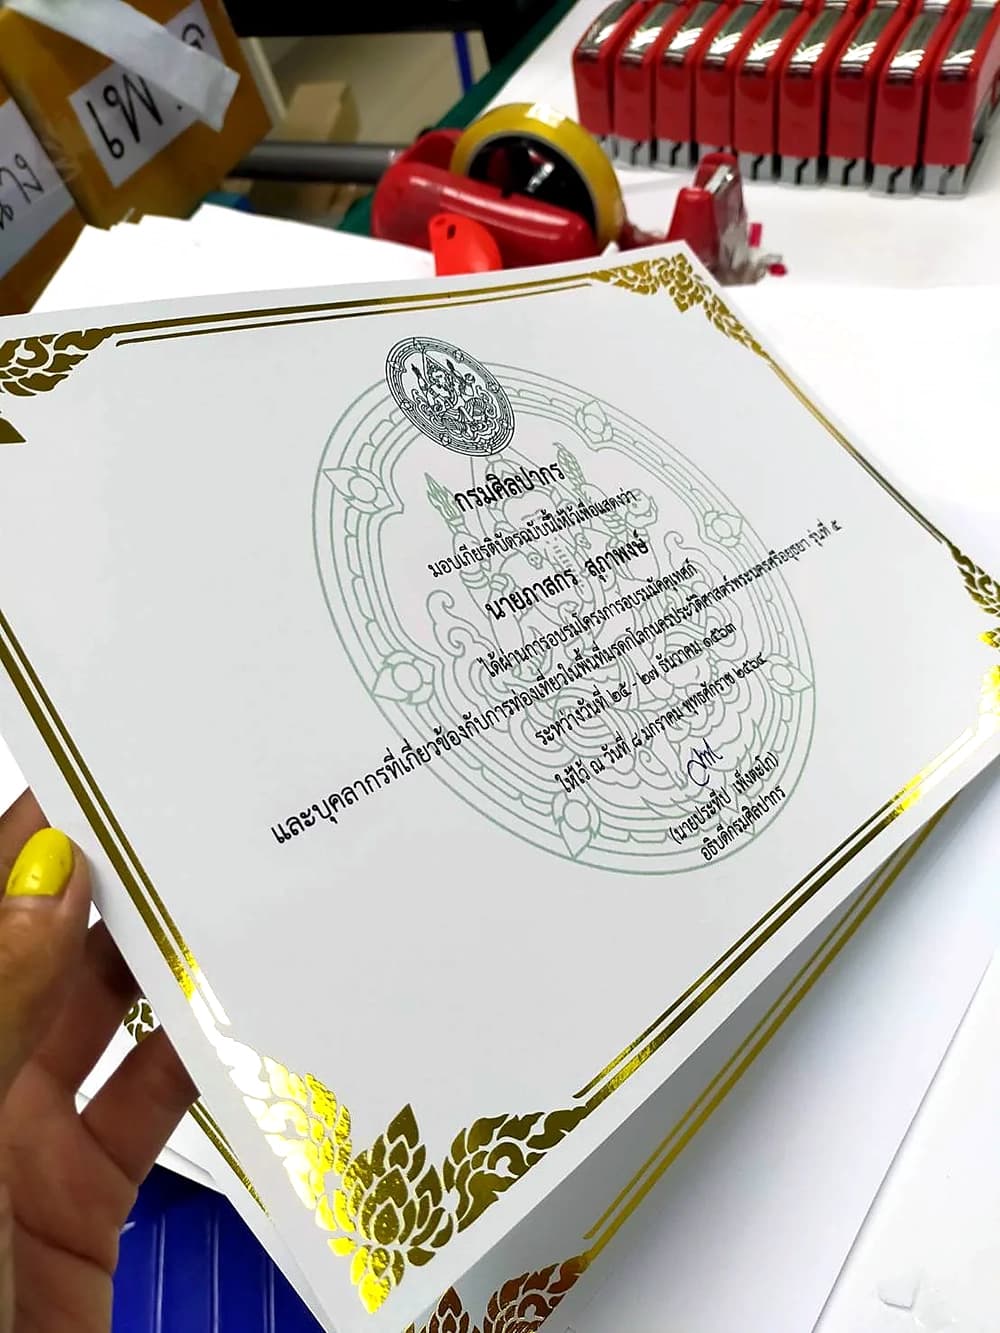 กรมศิลปากร
มอบเกียรติบัตรฉบับนี้ให้ไว้เพื่อแสดงว่า
นายภาสกร สุภาพงษ์
ได้ผ่านการอบรมโครงการอบรมมัคคุเทศก์
และบุคลากรที่เกี่ยวข้องกับการท่องเที่ยวในพื้นที่มรดกโลกนครประวัติศาสตร์พระนครศรีอยุธยา รุ่นที่ ๕
ระหว่างวันที่ ๒๕ - ๒๗ ธันวาคม ๒๕๖๓
ให้ไว้ ณ วันที่ ๘ มกราคม พุทธศักราช ๒๕๖๔
(นายประทีป เพ็งตะโก)
อธิบดีกรมศิลปากร